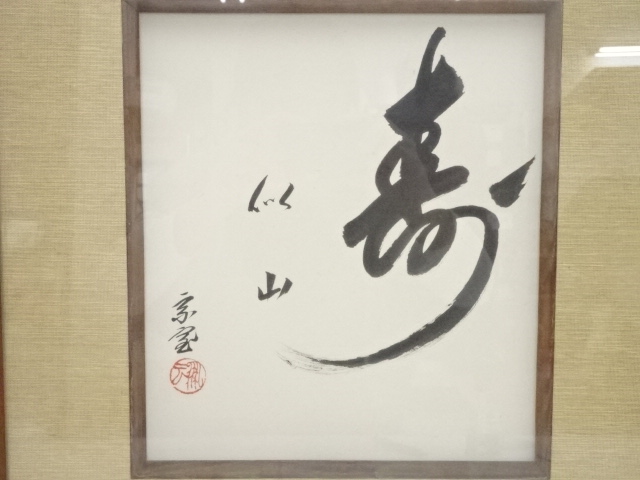 寿
似山
宗室